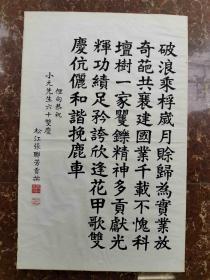 破浪乘桴歲月賒歸為實業放
奇葩共襄建國業千載不愧科
壇樹一家矍鑠精神多貢獻光
輝功績足矜誇欣逢花甲歌雙
慶伉儷和諧挽鹿車
俚句恭祝
小元先生六十雙慶
松江張聯芳書